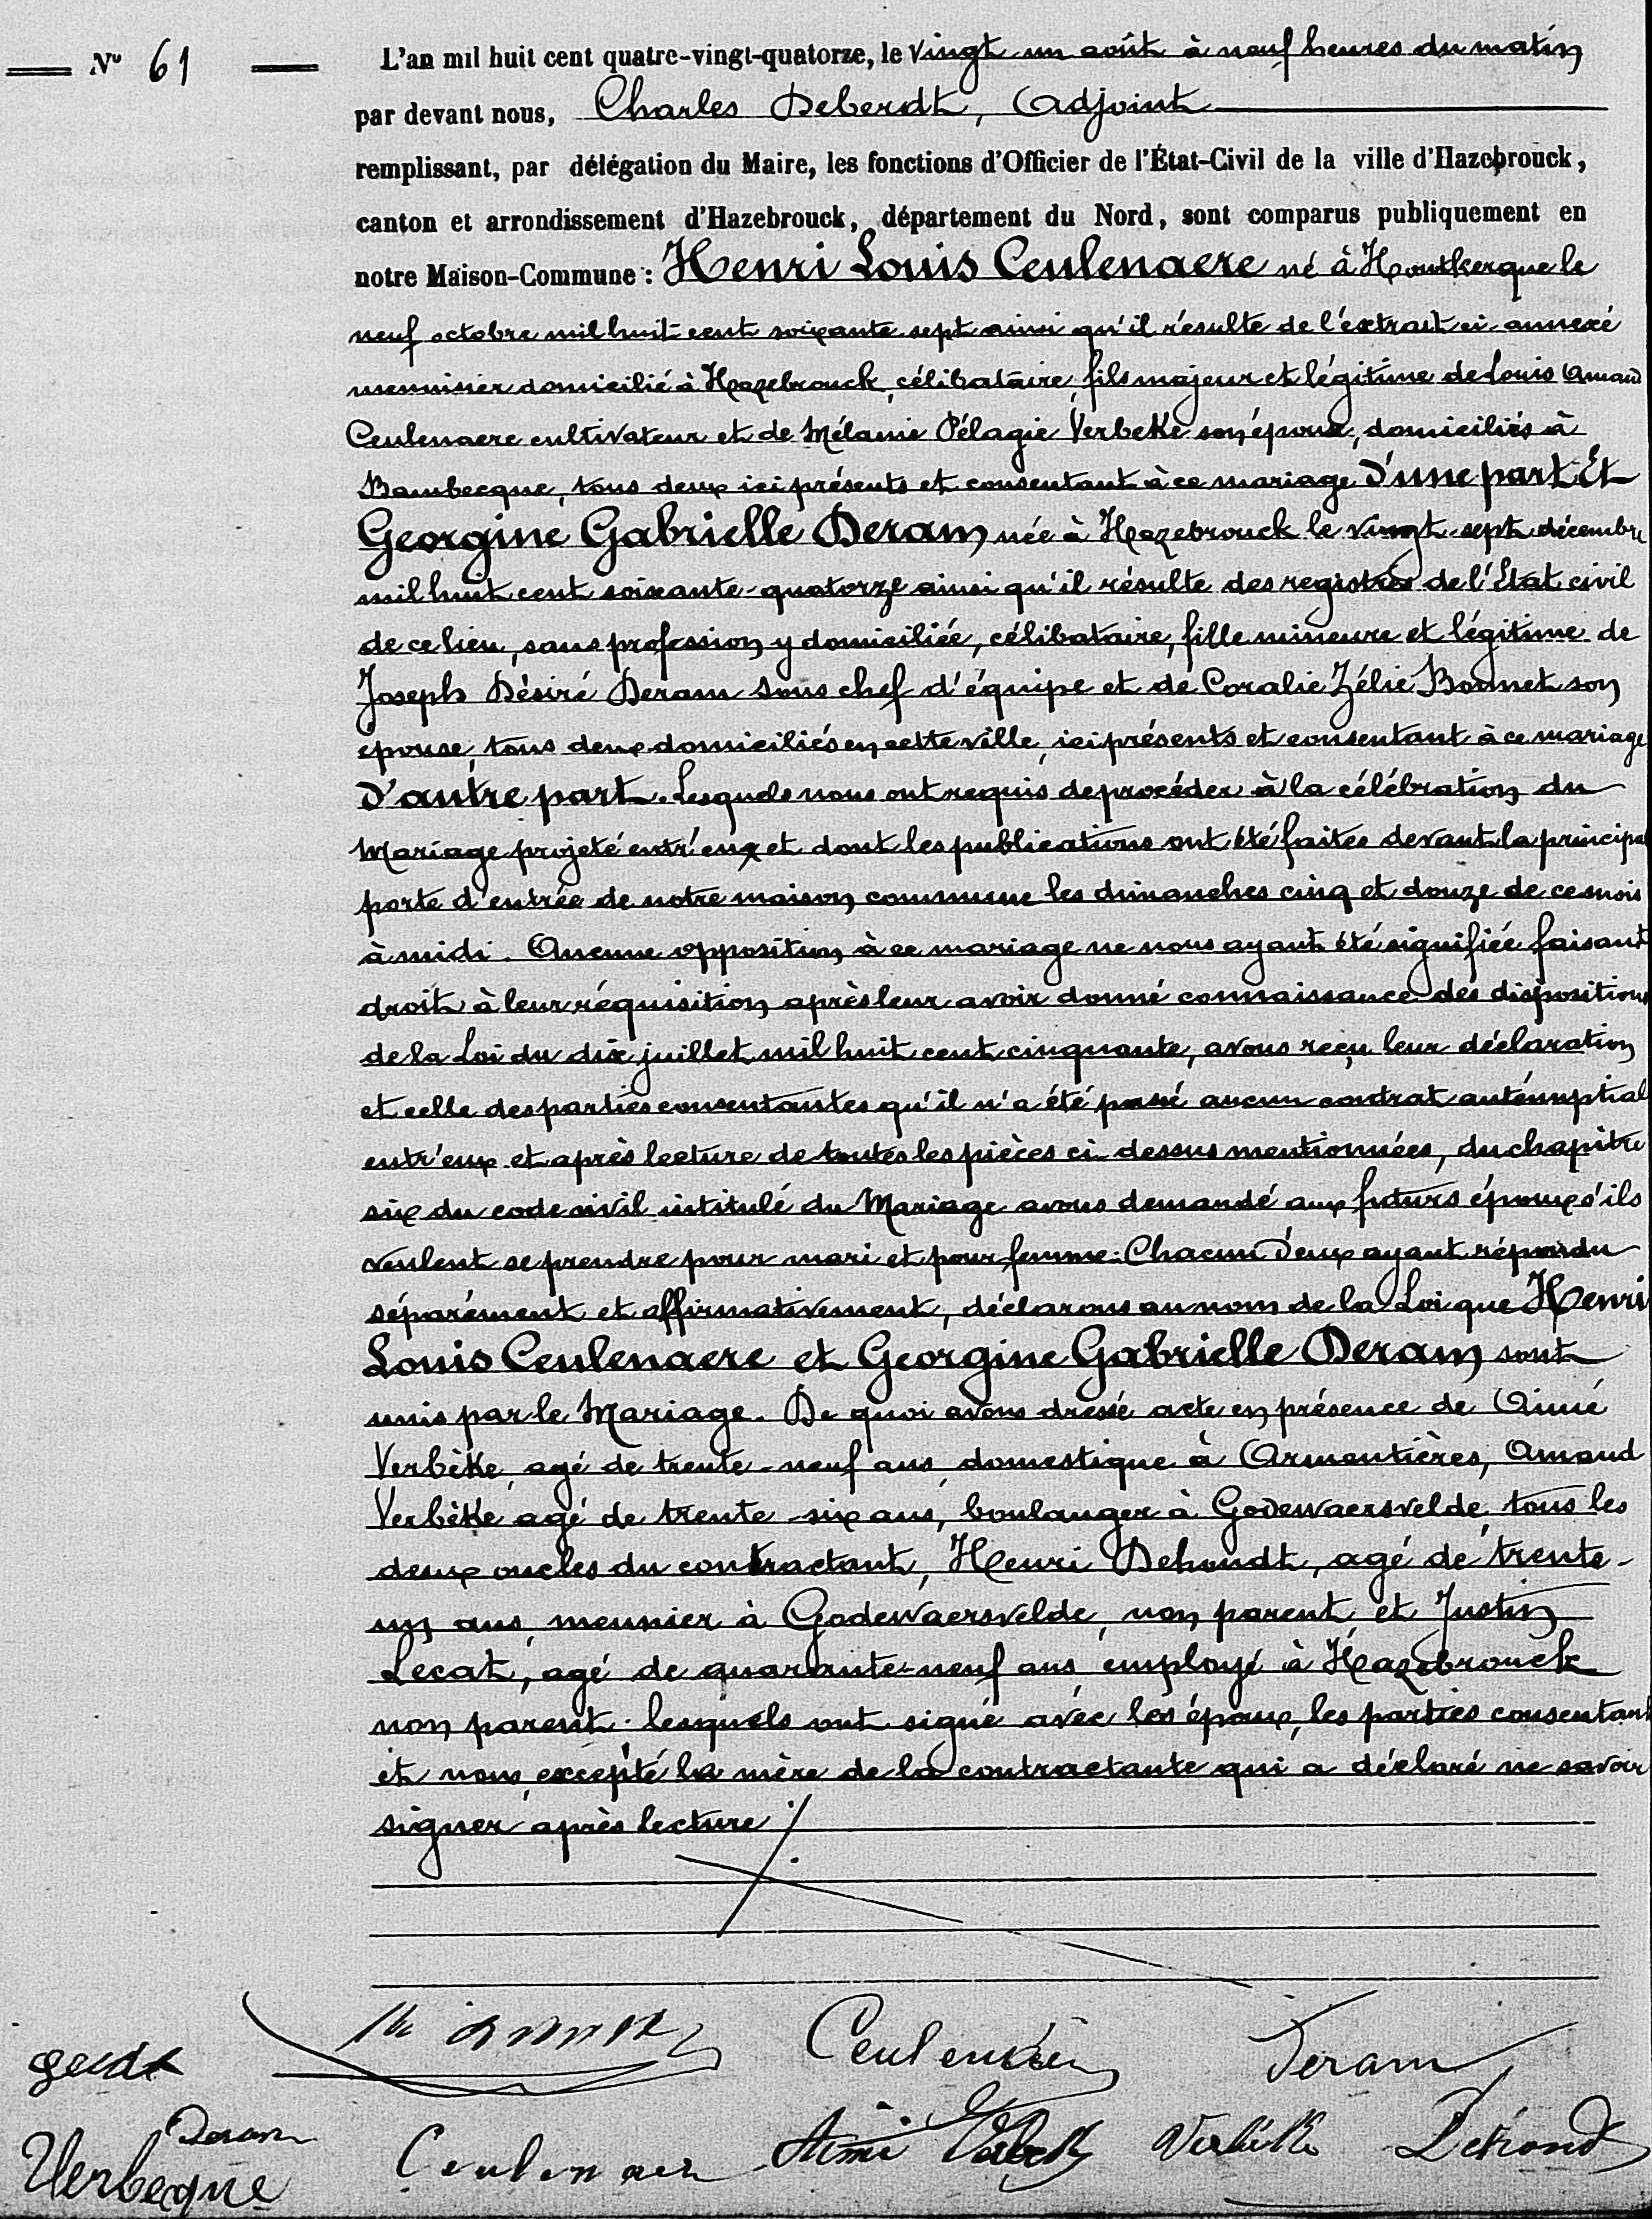 N° 61
L'an mil huit cent quatre-vingt-quatorze, le vingt un août à neuf heures du matin
par devant nous, Charles Deberdt, Adjoint
remplissant, par délégation du Maire, les fonctions d'Officier de l'État-Civil de la ville d'Hazebrouck,
canton et arrondissement d'Hazebrouck, département du Nord, sont comparus publiquement en
notre Maison-Commune : Henri Louis Ceulenaere né à Houtkerque le
neuf octobre mil huit cent soixante sept ainsi qu'il résulte de l'extrait ci-annexé
menuisier domicilié à Hazebrouck, célibataire, fils majeur et légitime de Louis Amand
Ceulenaere cultivateur et de Mélanie Pélagie Verbeké son épouse, domiciliés à
Bambecque, tous deux ici présents et consentant à ce mariage D'une part Et
Georgine Gabrielle Deram née à Hazebrouck le vingt-sept décembre
mil huit cent soixante-quatorze ainsi qu'il résulte des registres de l'État civil
de ce lieu, sans profession y domiciliée, célibataire, fille mineure et légitime de
Joseph Désiré Deram sous chef d'équipe et de Coralie Zélie Bonnet son
épouse, tous deux domiciliés en cette ville, ici présents et consentant à ce mariage
D'autre part. Lesquels nous ont requis de procéder à la célébration du
Mariage projeté entr'eux et dont les publications ont été faites devant la principal
porte d'entrée de notre maison commune les dimanches cinq et douze de ce mois
à midi. Aucune opposition à ce mariage ne nous ayant été signifiée faisant
droit à leur réquisition après leur avoir donné connaissance des dispositions
de la Loi du dix juillet mil huit cent cinquante, avons reçu leur déclaration
et celle des parties consentantes qu'il n'a été passé aucun contrat anténuptial
entr'eux et après lecture de toutes les pièces ci-dessus mentionnées, du chapitre
six du code civil intitulé du Mariage avons demandé aux futurs époux s'ils
veulent se prendre pour mari et pour femme. Chacun d'eux ayant répondu
séparément et affirmativement, déclarons au nom de la Loi que Henri
Louis Ceulenaere et Georgine Gabrielle Deram sont
unis par le Mariage. De quoi avons dressé acte en présence de Aimé
Verbèke, agé de trente-neuf ans, domestique à Armentières, Amand
Verbèke agé de trente-six ans, boulanger à Godewaersvelde, tous les
deux oncles du contractant, Henri Dehondt, agé de trente-
un ans, meunier à Godewaersvelde, non parent et Justin
Lecat, agé de quarante-neuf ans employé à Hazebrouck
non parent. lesquels ont signé avec les époux, les parties consentant
et nous excepté la mère de la contractante qui a déclaré ne savoir
signer après lecture
Deram
Deram
Verbecque
Ceulenaer
Aimé Verbeke Verbèke Dehondt